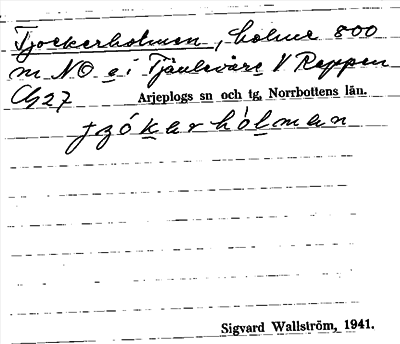 Tjockerholmen, holme 800
m NO e i Tjäulevåre V Reppen
Ch 27 Arjeplogs sn och tg, Norrbottens län.
tjókarhólman
Sigvard Wallström, 1941.